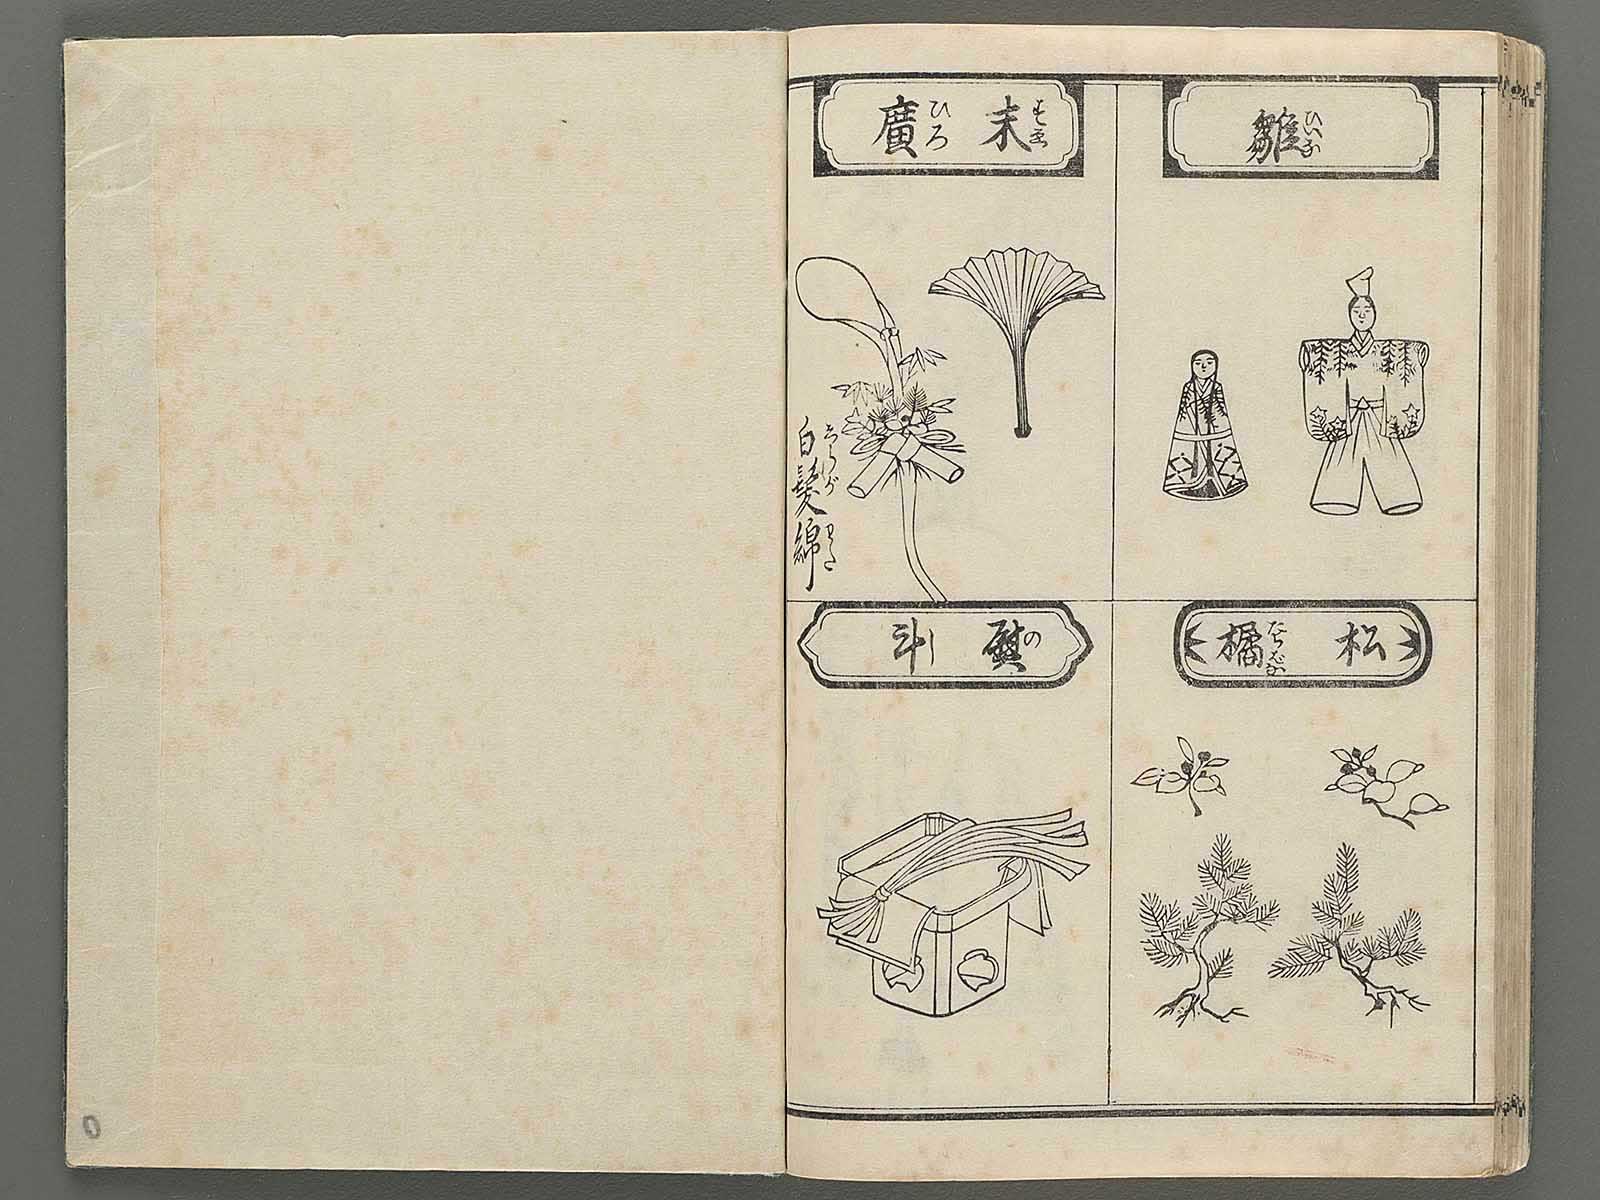 雛
ひいな
末廣
すゑひろ
白髪綿
しらがわた
松 橘
たちばな
熨斗
のし
0